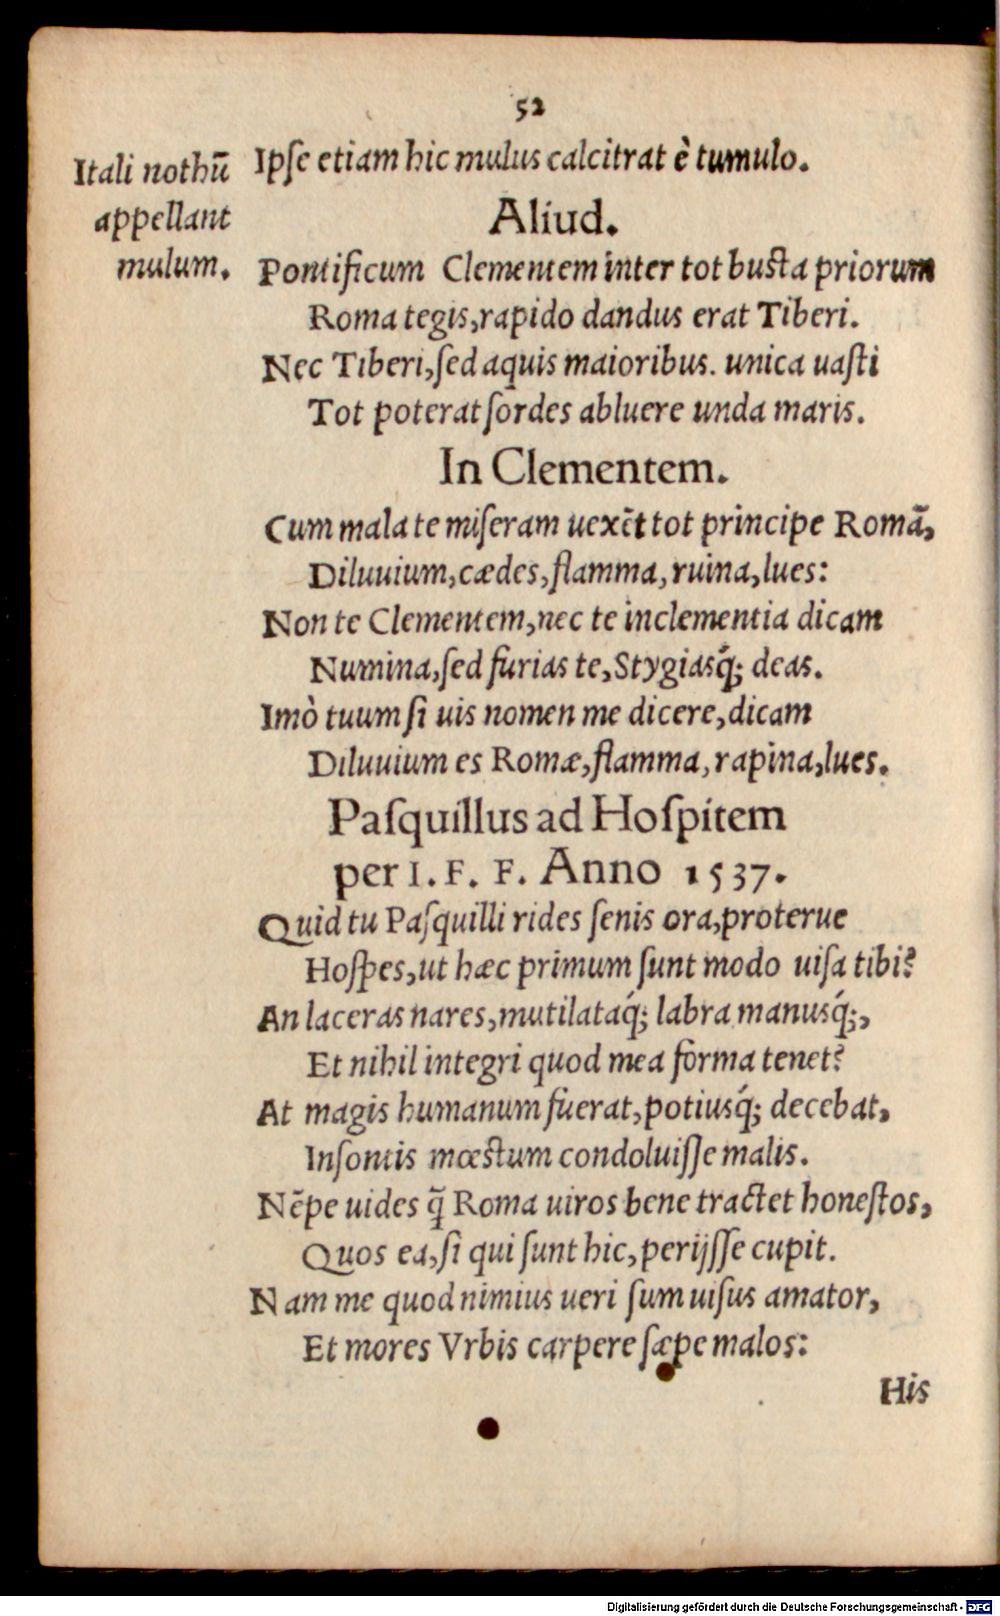 52
Itali nothū
appellant
mulum.
Ipſe etiam hic mulus calcitrat è tumulo.
Aliud.
Pontificum Clementem inter tot busta priorum
Roma tegis, rapido dandus erat Tiberi.
Nec Tiberi, ſed aquis maioribus. unica uaſti
Tot poterat ſordes abluere unda maris.
In Clementem.
Cum mala te miſeram uexēt tot principe Romā,
Diluuium, cædes, flamma, ruina, lues:
Non te Clementem, nec te inclementia dicam
Numina, ſed furias te, Stygiasq́; deas.
Imò tuum ſi uis nomen me dicere, dicam
Diluuium es Romæ, flamma, rapina, lues.
Paſquillus ad Hoſpitem
per I. F. F. Anno 1537.
Quid tu Paſquilli rides ſenis ora, proterue
Hoſpes, ut hæc primum ſunt modo uiſa tibi?
An laceras nares, mutilataq́; labra manusq́;,
Et nihil integri quod mea forma tenet?
At magis humanum fuerat, potiusq́; decebat,
Inſontis mœstum condoluiſſe malis.
Nēpe uides q̄ Roma uiros bene tractet honeſtos,
Quos ea, ſi qui ſunt hic, perijſſe cupit.
Nam me quod nimius ueri ſum uiſus amator,
Et mores Vrbis carpere ſæpe malos:
His
Digitalisierung gefördert durch die Deutsche Forschungsgemeinschaft - DFG